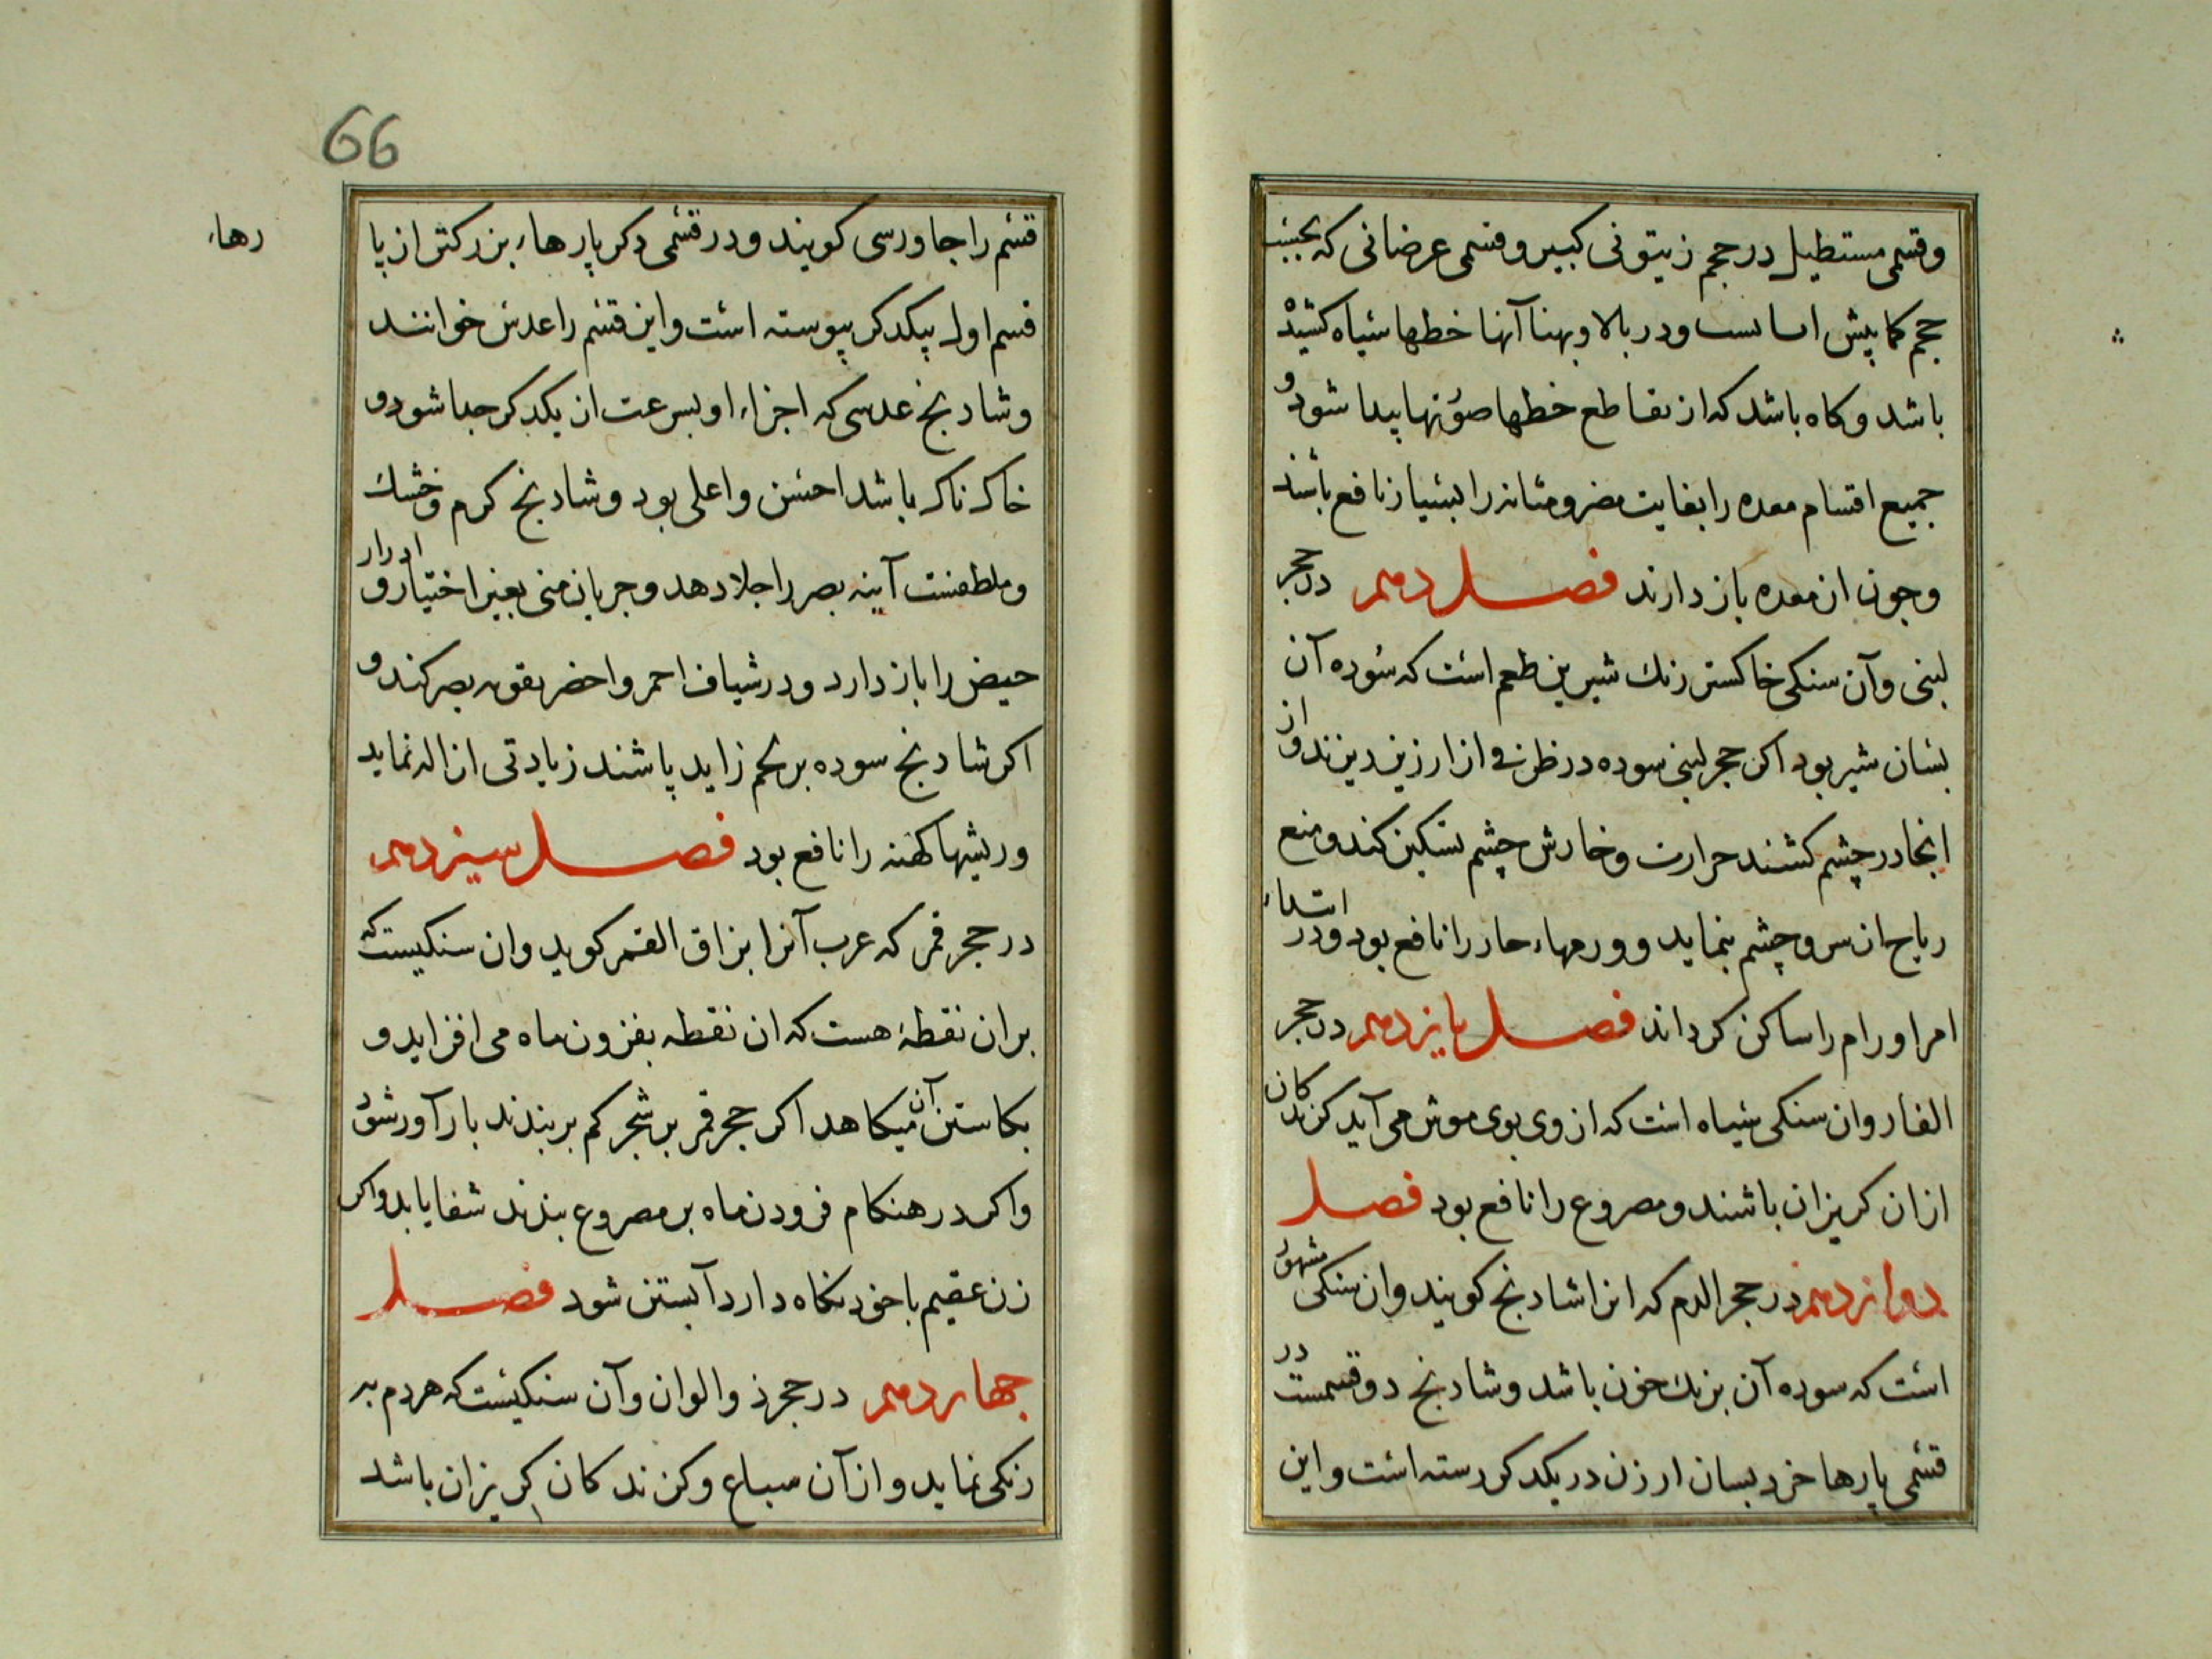 وقسمی مستطیل در حجم زیتونی کبیر و قسمی عرضانی که بحیثیت
حجم کما بیش انسانست و در بالا و بهنا آنها خطها سیاه کشیده
باشد و کاه باشد که از تقاطع خطها صورتها پیدا شود و
جمیع اقسام معده را بغایت مضر و مثانه را بسیار نافع باشند
و چون از معده باز دارند فصل دهم در حجر
لبنی و آن سنکی خاکستر رنك شیرین طعم است که سوده آن
بسان شیر بود اکر حجر لبنی سوده در ظرفی از ارزیز ریزند و از
انجا در چشم کشند حرارت و خارش چشم تسکین کند و منع
ریاح از سر و چشم بنماید و ورمهاء حار را نافع بود و در ابتداء
امر اورام را ساکن کرداند فصل یازدهم در حجر
الفار و ان سنکی سیاه است که از وی بوی موش می آید کزندکان
ازان کریزان باشند و مصروع را نافع بود فصل
دوازدهم در حجر الدم که انرا شادنج کویند و ان سنکی مشهور
است که سوده آن برنك خون باشد و شادنج دو قسمست در
قسمی پارها خرد بسان ارزن در یکدکر رسته است و این
66
قسم را جاورسی کویند و در قسمی دکر پارهاء بزرکتر از پا
رهاء
قسم اول بیکدکر پیوسته است و این قسم را عدسی خوانند
و شادنج عدسی که اجزاء او بسرعت از یکدکر جدا شود و
خاک ناک باشد احسن و اعلی بود و شادنج کرم و خشك
و ملطفست آینه بصر را جلا دهد و جریان منی بغیر اختیار و ادرار
حیض را باز دارد و در شیاف احمر و اخضر تقویه بصر کند و
اکر شادنج سوده بر لحم زاید پاشند زیادتی ازاله نماید
و ریشها کهنه را نافع بود فصل سیزدهم
در حجر قمر که عرب آنرا بزاق القمر کوید و ان سنکیست که
بران نقطهٔ هست که ان نقطه بفزون ماه می افزاید و
بکاستن آن میکاهد اکر حجر قمر بر شجر کم بر بندند بار آور شود
و اکر در هنکام فزودن ماه بر مصروع بندند شفا یابد و اکر
زن عقیم با خود نکاه دارد آبستن شود فصل
جهاردهم در حجر ذو الوان و آن سنکیست که هر دم به
رنکی نماید و از آن سباع و کزندکان کریزان باشد